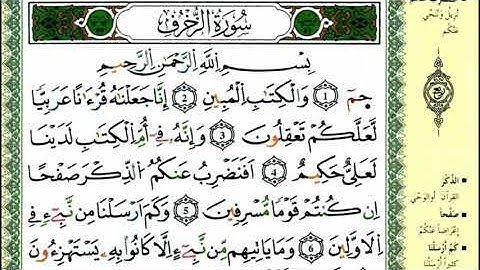 سُورَةُ الزُّخْرُفِ
بِسْمِ اللَّهِ الرَّحْمَٰنِ الرَّحِيمِ
حمٓ ١ وَالْكِتَٰبِ الْمُبِينِ ٢ إِنَّا جَعَلْنَٰهُ قُرْءَٰنًا عَرَبِيًّا
لَّعَلَّكُمْ تَعْقِلُونَ ٣ وَإِنَّهُۥ فِىٓ أُمِّ الْكِتَٰبِ لَدَيْنَا
لَعَلِىٌّ حَكِيمٌ ٤ أَفَنَضْرِبُ عَنكُمُ الذِّكْرَ صَفْحًا
إِن كُنتُمْ قَوْمًا مُّسْرِفِينَ ٥ وَكَمْ أَرْسَلْنَا مِن نَّبِىٓءٍ فِى
الْأَوَّلِينَ ٦ وَمَا يَأْتِيهِم مِّن نَّبِىٓءٍ إِلَّا كَانُوا بِهِۦ يَسْتَهْزِءُونَ
نُزيلُ ونُنَحِّي
عنكُم
الذِّكْرَ
القرآن أو الوَحْيَ
صَفْحًا
إعْرَاضًا عَنْكُمْ
كَمْ أَرْسَلْنَا
كثيرًا أرْسَلْنا